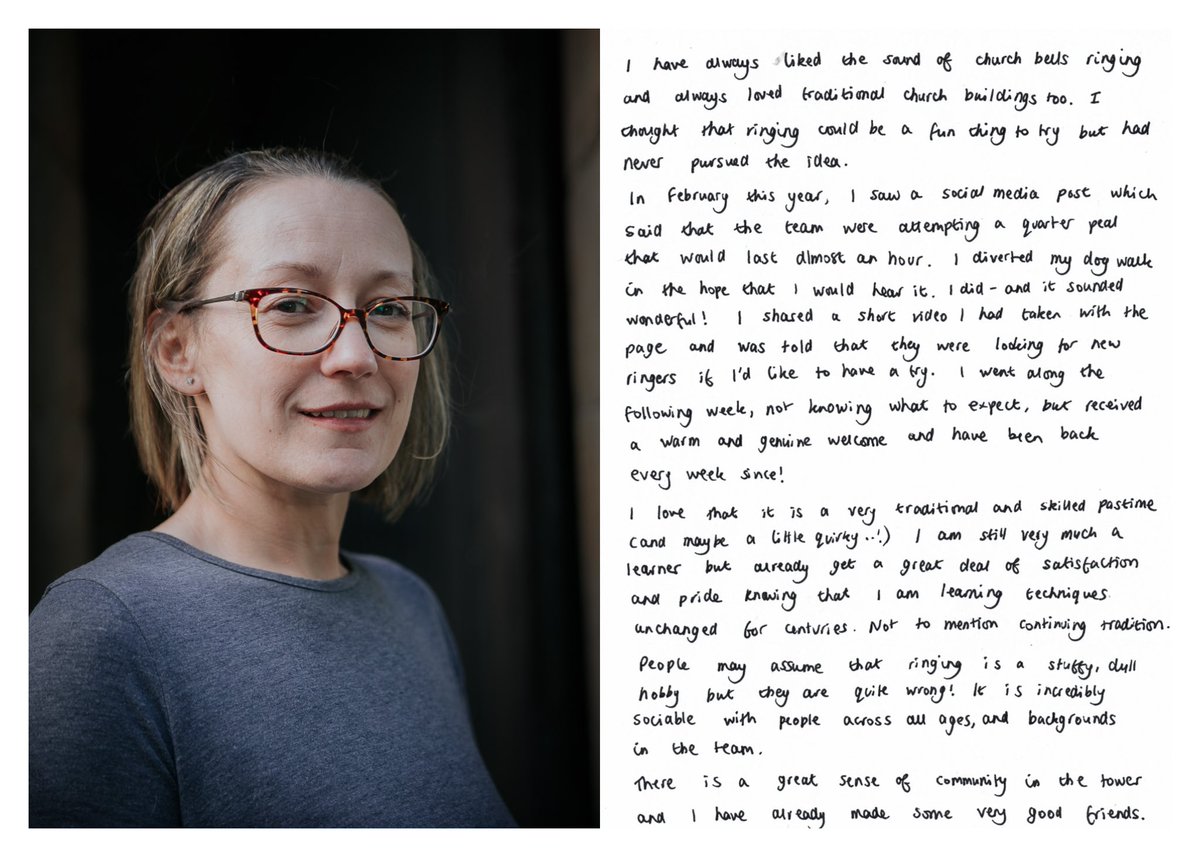 I have always liked the sound of church bells ringing
and always loved traditional church buildings too. I
thought that ringing could be a fun thing to try but had
never pursued the idea.
In February this year, I saw a social media post which
said that the team were attempting a quarter peal
that would last almost an hour. I diverted my dog walk
in the hope that I would hear it. I did - and it sounded
wonderful! I shared a short video I had taken with the
page and was told that they were looking for new
ringers if I'd like to have a try. I went along the
following week, not knowing what to expect, but received
a warm and genuine welcome and have been back
every week since!
I love that it is a very traditional and skilled pastime
(and maybe a little quirky..!) I am still very much a
learner but already get a great deal of satisfaction
and pride knowing that I am learning techniques
unchanged for centuries. Not to mention continuing tradition.
People may assume that ringing is a stuffy, dull
hobby but they are quite wrong! It is incredibly
sociable with people across all ages, and backgrounds
in the team.
There is a great sense of community in the tower
and I have already made some very good friends.